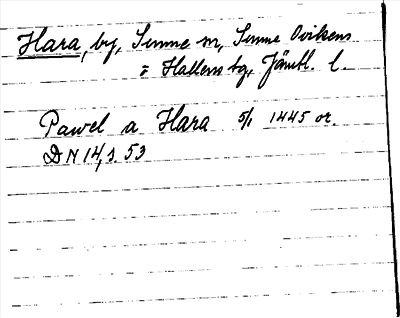 Hara, by, Sunne sn, Sunne Ovikens
= Hallens tg, Jämtl. l.
Pawel a Hara 5/1 1445 or.
DN 14, s. 53